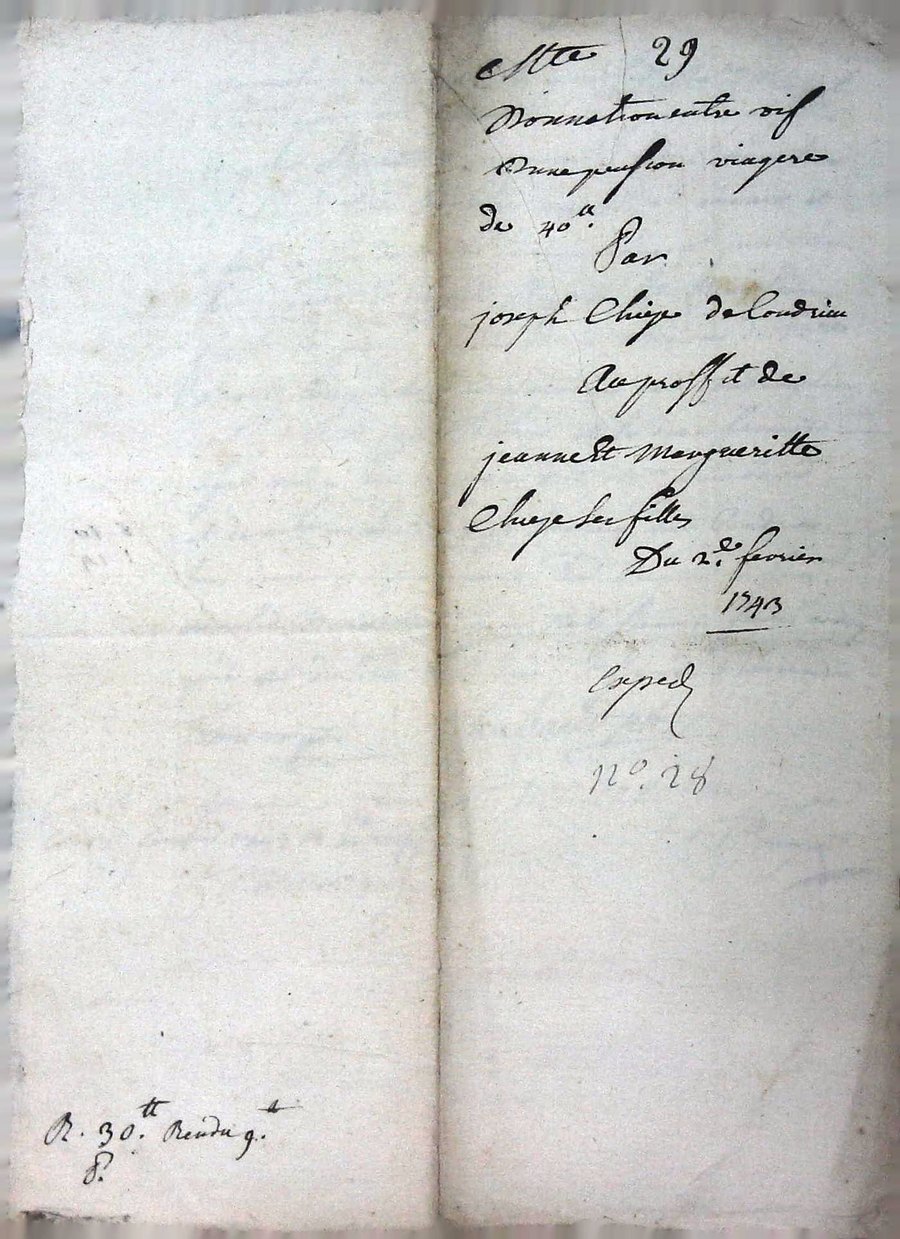 29
Donnation entre vif
Dune pension viagere
de 40ᵗᵗ.
Par
joseph Chieze de Condrieu
Au proffit de
jeanne Et Margueritte
Chieze Ses filles
Du 2.de fevrier
1743
Exped
n°. 28
R. 30.ᵗᵗ Rendu 9.ᵗᵗ